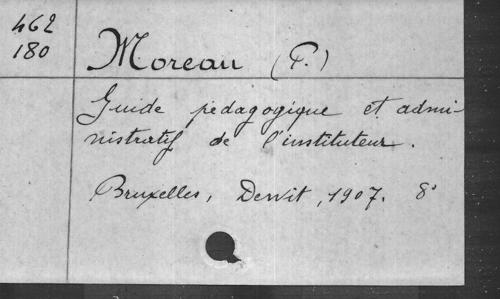 462
180
Moreau (P.)
Guide pédagogique et admi-
nistratif de l'instituteur.
Bruxelles, Dewit, 1907. 8°